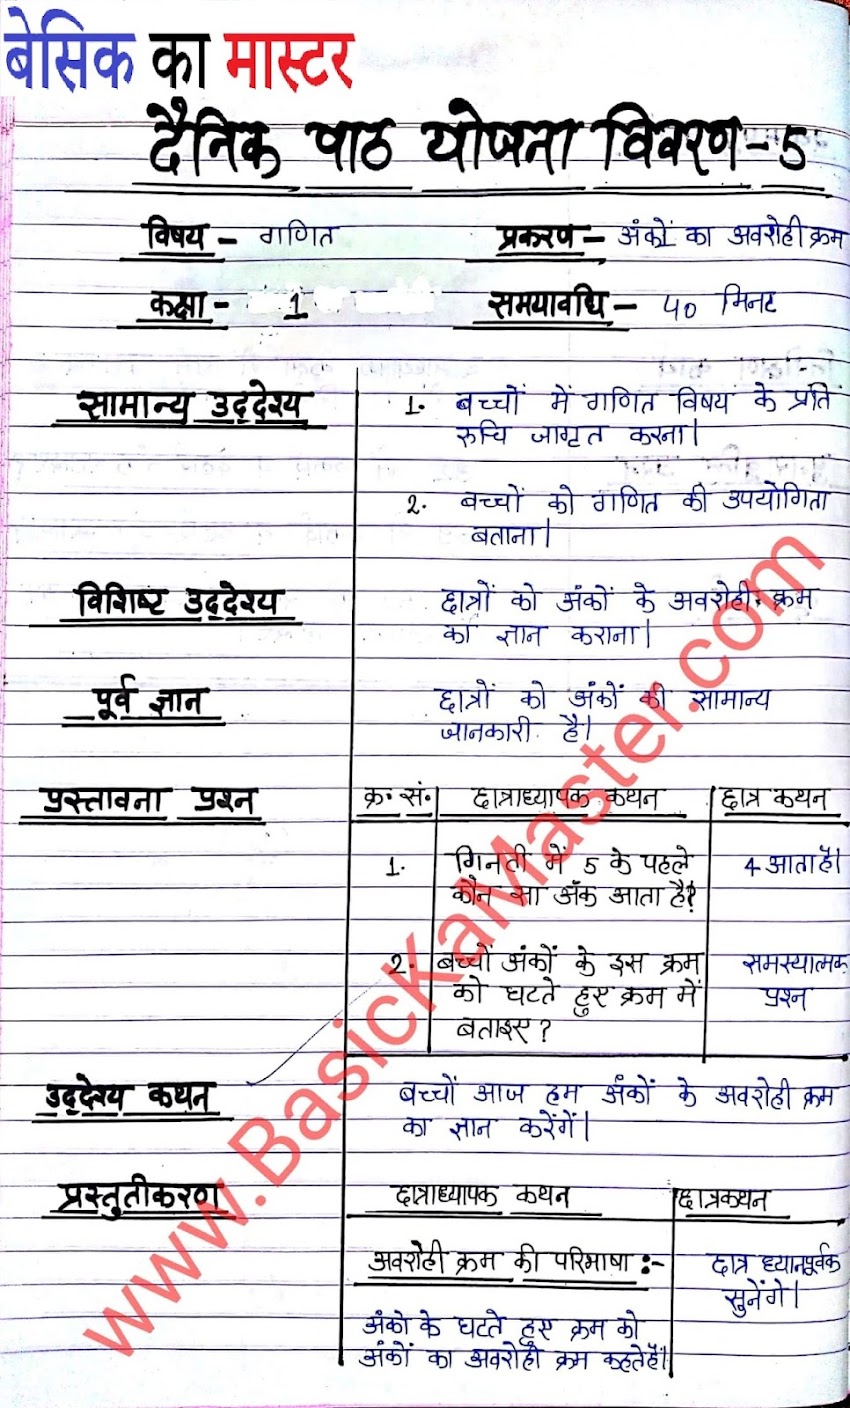 बेसिक का मास्टर
दैनिक पाठ योजना विवरण-5
विषय - गणित प्रकरण - अंकों का अवरोही क्रम
कक्षा - 1 समयावधि - 40 मिनट
सामान्य उद्देश्य 1. बच्चों में गणित विषय के प्रति
रुचि जागृत करना।
2. बच्चों को गणित की उपयोगिता
बताना।
विशिष्ट उद्देश्य छात्रों को अंकों के अवरोही क्रम
का ज्ञान कराना।
पूर्व ज्ञान छात्रों को अंकों की सामान्य
जानकारी है।
प्रस्तावना प्रश्न क्र. सं. छात्राध्यापक कथन छात्र कथन
1. गिनती में 5 के पहले 4 आता है।
कौन सा अंक आता है?
2. बच्चों अंकों के इस क्रम समस्यात्मक
को घटते हुए क्रम में प्रश्न
बताइए?
उद्देश्य कथन बच्चों आज हम अंकों के अवरोही क्रम
का ज्ञान करेंगें।
प्रस्तुतीकरण छात्राध्यापक कथन छात्रकथन
अवरोही क्रम की परिभाषा :- छात्र ध्यानपूर्वक
सुनेंगे।
अंको के घटते हुए क्रम को
अंकों का अवरोही क्रम कहतेहैं।
www.BasicKaMaster.com